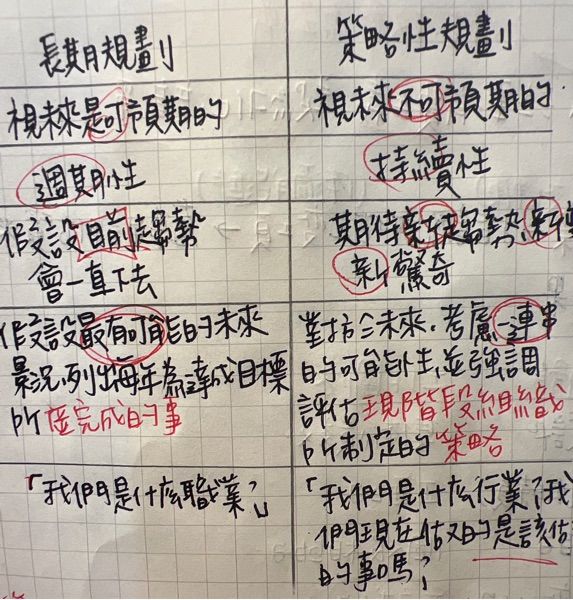 長期規劃
策略性規劃
視未來是可預期的
視未來不可預期的
週期性
持續性
假設目前趨勢
會一直下去
期待新趨勢、新變
新驚奇
假設最有可能的未來
景況,列出每年為達成目標
所應完成的事
對抗未來,考慮一連串
的可能性,並強調
評估現階段組織
所制定的策略
「我們是什麼職業?」
「我們是什麼行業?我
們現在做的是該做
的事嗎?